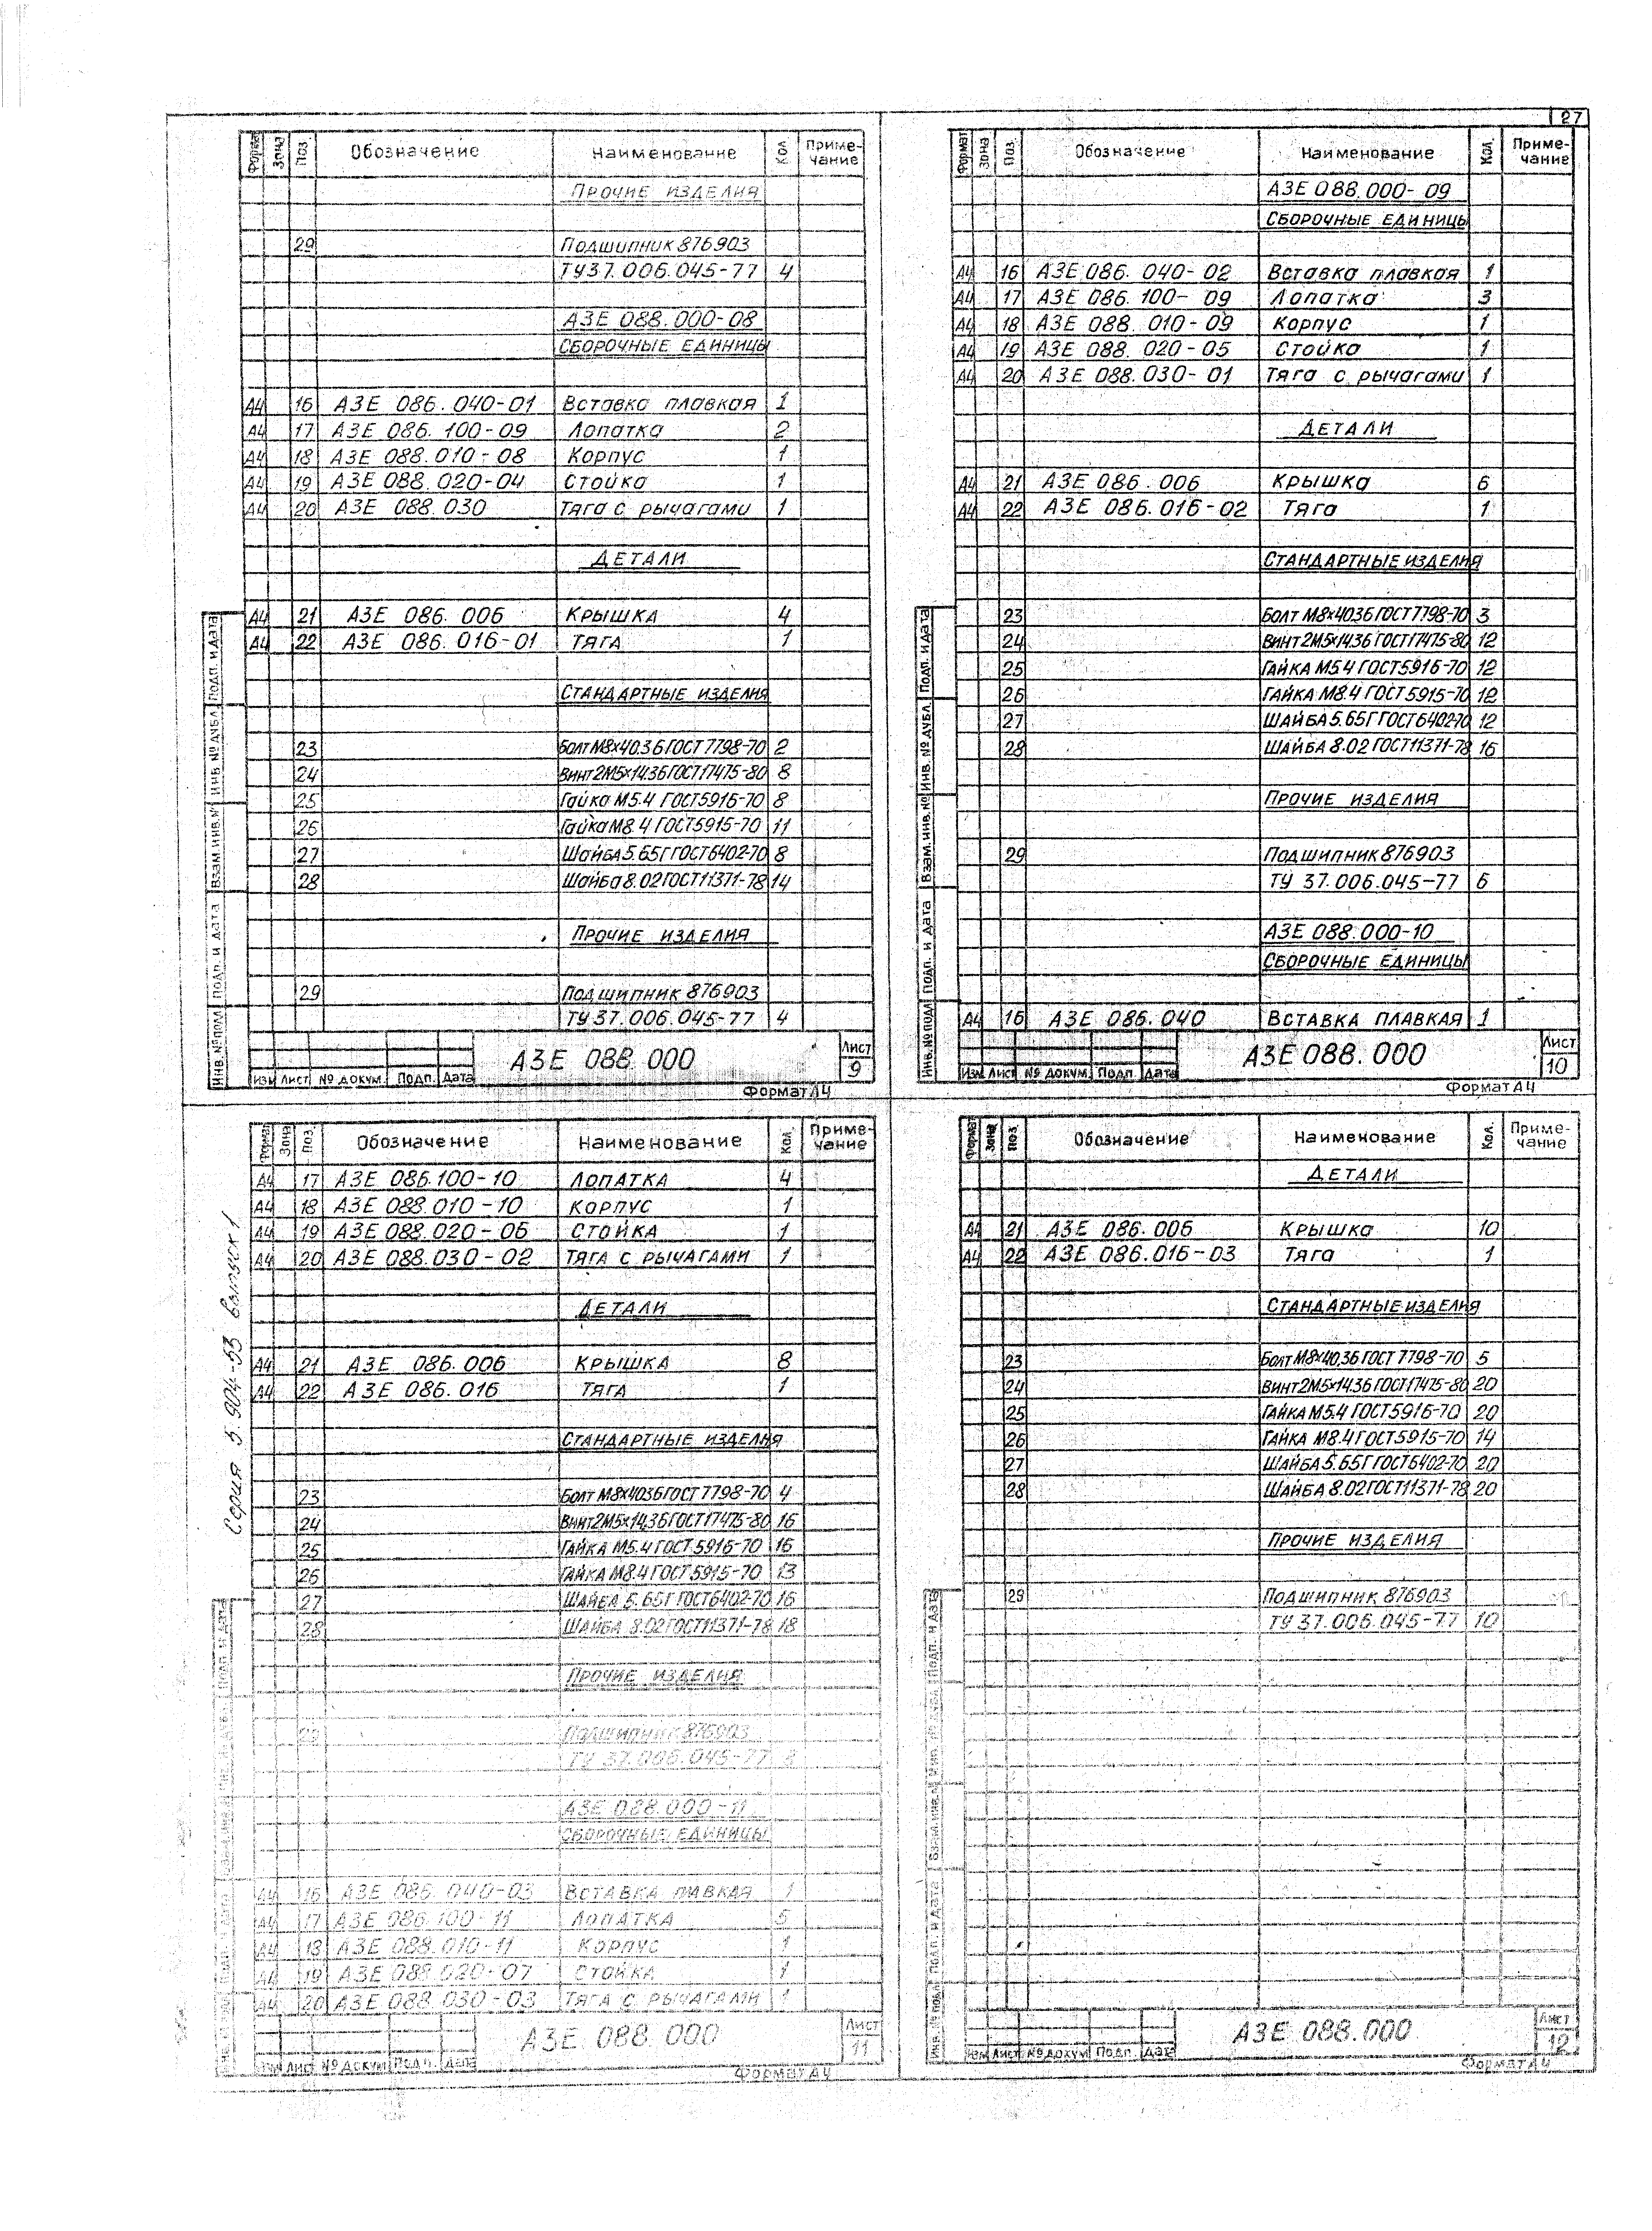 27
Формат Зона Поз. Обозначение Наименование Кол. Приме-
чание
ПРОЧИЕ ИЗДЕЛИЯ
29 Подшипник 876903
ТУ37.006.045-77 4
АЗЕ 088.000-08
СБОРОЧНЫЕ ЕДИНИЦЫ
А4 16 АЗЕ 086.040-01 Вставка плавкая 1
А4 17 АЗЕ 086.100-09 Лопатка 2
А4 18 АЗЕ 088.010-08 Корпус 1
А4 19 АЗЕ 088.020-04 Стойка 1
А4 20 АЗЕ 088.030 Тяга с рычагами 1
ДЕТАЛИ
А4 21 АЗЕ 086.006 КРЫШКА 4
А4 22 АЗЕ 086.016-01 ТЯГА 1
СТАНДАРТНЫЕ ИЗДЕЛИЯ
23 Болт М8×40.36 ГОСТ 7798-70 2
24 Винт 2М5×14.36 ГОСТ17475-80 8
25 Гайка М5.4 ГОСТ5916-70 8
26 Гайка М8.4 ГОСТ5915-70 11
27 Шайба 5.65Г ГОСТ6402-70 8
28 Шайба 8.02 ГОСТ11371-78 14
ПРОЧИЕ ИЗДЕЛИЯ
29 Подшипник 876903
ТУ 37.006.045-77 4
АЗЕ 088.000
Лист
9
Изм Лист № докум. Подп. Дата
Формат А4
Инв. № подл Подп. и дата Взам. инв. № Инв. № дубл. Подп. и дата
Формат Зона Поз. Обозначение Наименование Кол. Приме-
чание
АЗЕ 088.000-09
СБОРОЧНЫЕ ЕДИНИЦЫ
А4 16 АЗЕ 086.040-02 Вставка плавкая 1
А4 17 АЗЕ 086.100-09 Лопатка 3
А4 18 АЗЕ 088.010-09 Корпус 1
А4 19 АЗЕ 088.020-05 Стойка 1
А4 20 АЗЕ 088.030-01 Тяга с рычагами 1
ДЕТАЛИ
А4 21 АЗЕ 086.006 Крышка 6
А4 22 АЗЕ 086.016-02 Тяга 1
СТАНДАРТНЫЕ ИЗДЕЛИЯ
23 Болт М8×40.36 ГОСТ 7798-70 3
24 Винт 2М5×14.36 ГОСТ17475-80 12
25 ГАЙКА М5.4 ГОСТ5916-70 12
26 ГАЙКА М8.4 ГОСТ5915-70 12
27 ШАЙБА 5.65Г ГОСТ6402-70 12
28 ШАЙБА 8.02 ГОСТ11371-78 16
ПРОЧИЕ ИЗДЕЛИЯ
29 Подшипник 876903
ТУ 37.006.045-77 6
АЗЕ 088.000-10
СБОРОЧНЫЕ ЕДИНИЦЫ
А4 16 АЗЕ 086.040 ВСТАВКА ПЛАВКАЯ 1
АЗЕ 088.000
Лист
10
Изм Лист № докум. Подп. Дата
Формат А4
Инв. № подл Подп. и дата Взам. инв. № Инв. № дубл. Подп. и дата
Серия 5.904-53 выпуск 1
Формат Зона Поз. Обозначение Наименование Кол. Приме-
чание
А4 17 АЗЕ 086.100-10 ЛОПАТКА 4
А4 18 АЗЕ 088.010-10 КОРПУС 1
А4 19 АЗЕ 088.020-06 СТОЙКА 1
А4 20 АЗЕ 088.030-02 ТЯГА С РЫЧАГАМИ 1
ДЕТАЛИ
А4 21 АЗЕ 086.006 КРЫШКА 8
А4 22 АЗЕ 086.016 ТЯГА 1
СТАНДАРТНЫЕ ИЗДЕЛИЯ
23 Болт М8×40.36 ГОСТ 7798-70 4
24 Винт 2М5×14.36 ГОСТ17475-80 16
25 ГАЙКА М5.4 ГОСТ 5916-70 16
26 ГАЙКА М8.4 ГОСТ 5915-70 13
27 ШАЙБА 5.65Г ГОСТ6402-70 16
28 ШАЙБА 8.02 ГОСТ11371-78 18
ПРОЧИЕ ИЗДЕЛИЯ
29 Подшипник 876903
ТУ 37.006.045-77 8
АЗЕ 088.000-11
СБОРОЧНЫЕ ЕДИНИЦЫ
А4 16 АЗЕ 086.040-03 ВСТАВКА ПЛАВКАЯ 1
А4 17 АЗЕ 086.100-11 ЛОПАТКА 5
А4 18 АЗЕ 088.010-11 КОРПУС 1
А4 19 АЗЕ 088.020-07 СТОЙКА 1
А4 20 АЗЕ 088.030-03 ТЯГА С РЫЧАГАМИ 1
АЗЕ 088.000
Лист
11
Изм Лист № докум Подп. Дата
Формат А4
Формат Зона Поз. Обозначение Наименование Кол. Приме-
чание
ДЕТАЛИ
А4 21 АЗЕ 086.006 Крышка 10
А4 22 АЗЕ 086.016-03 Тяга 1
СТАНДАРТНЫЕ ИЗДЕЛИЯ
23 Болт М8×40.36 ГОСТ 7798-70 5
24 Винт 2М5×14.36 ГОСТ17475-80 20
25 ГАЙКА М5.4 ГОСТ5916-70 20
26 ГАЙКА М8.4 ГОСТ5915-70 14
27 ШАЙБА 5.65Г ГОСТ6402-70 20
28 ШАЙБА 8.02 ГОСТ11371-78 20
ПРОЧИЕ ИЗДЕЛИЯ
29 Подшипник 876903
ТУ 37.006.045-77 10
АЗЕ 088.000
Лист
12
Изм Лист № докум Подп. Дата
Формат А4